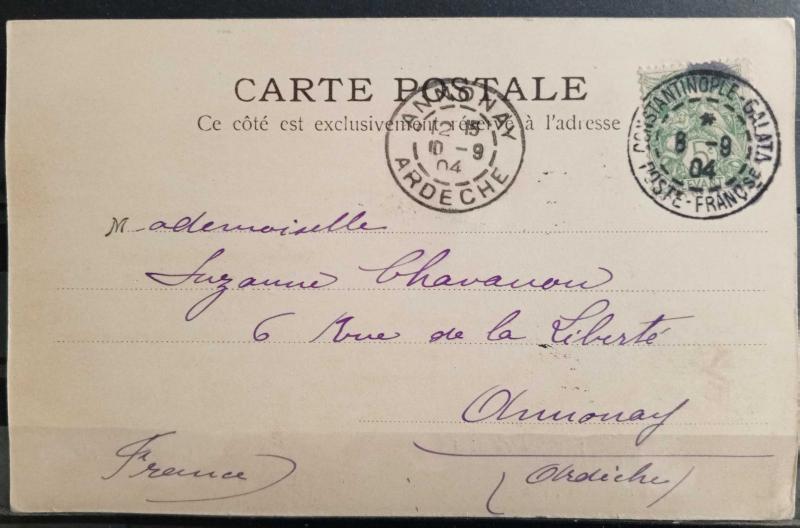 CARTE POSTALE
Ce côté est exclusivement réservé à l'adresse
ANNONAY
12 15
10 -9
04
ARDECHE
CONSTANTINOPLE-GALATA
*
8 -9
04
POSTE-FRANÇSE
5c
LEVANT
Mademoiselle
Suzanne Chavanon
6 Rue de la Liberté
Annonay
(Ardèche)
France